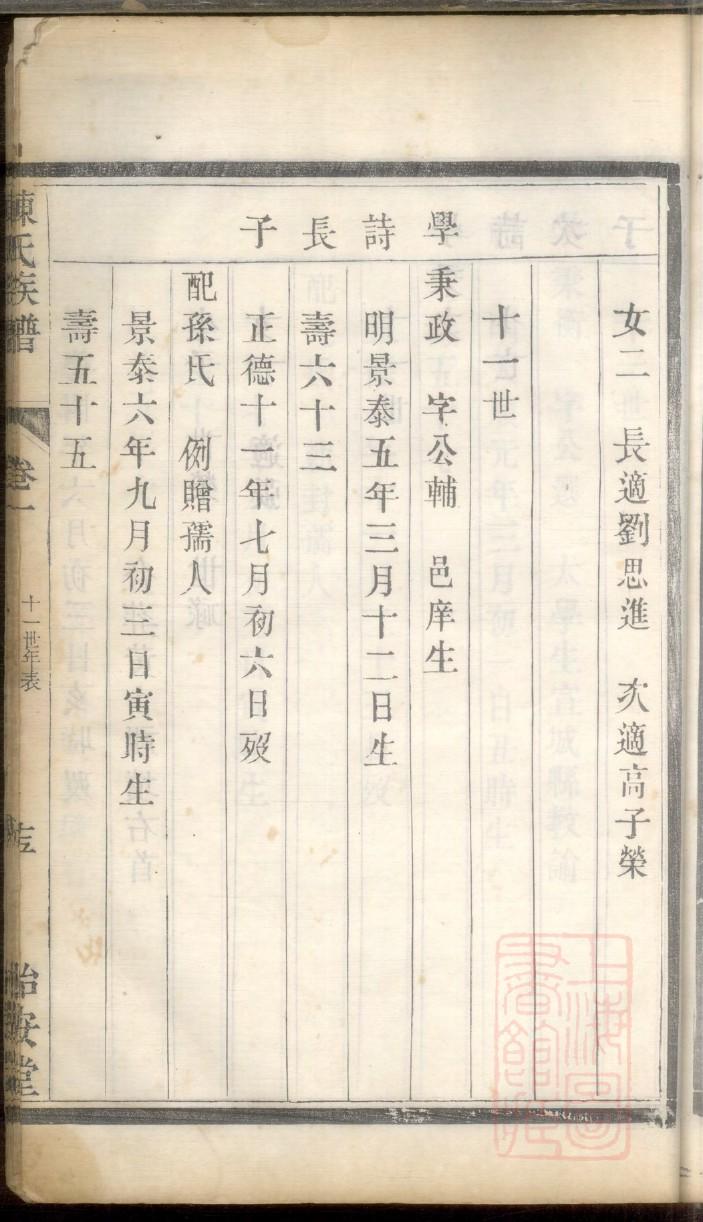 女二　長適劉思進　次適高子榮
十一世
學詩長子
秉政　字公輔　邑庠生
明景泰五年三月十二日生
壽六十三
正德十一年七月初六日歿
配孫氏　例贈孺人
景泰六年九月初三日寅時生
壽五十五
陳氏族譜
卷一
十一世年表
怡安堂
上海圖書館藏